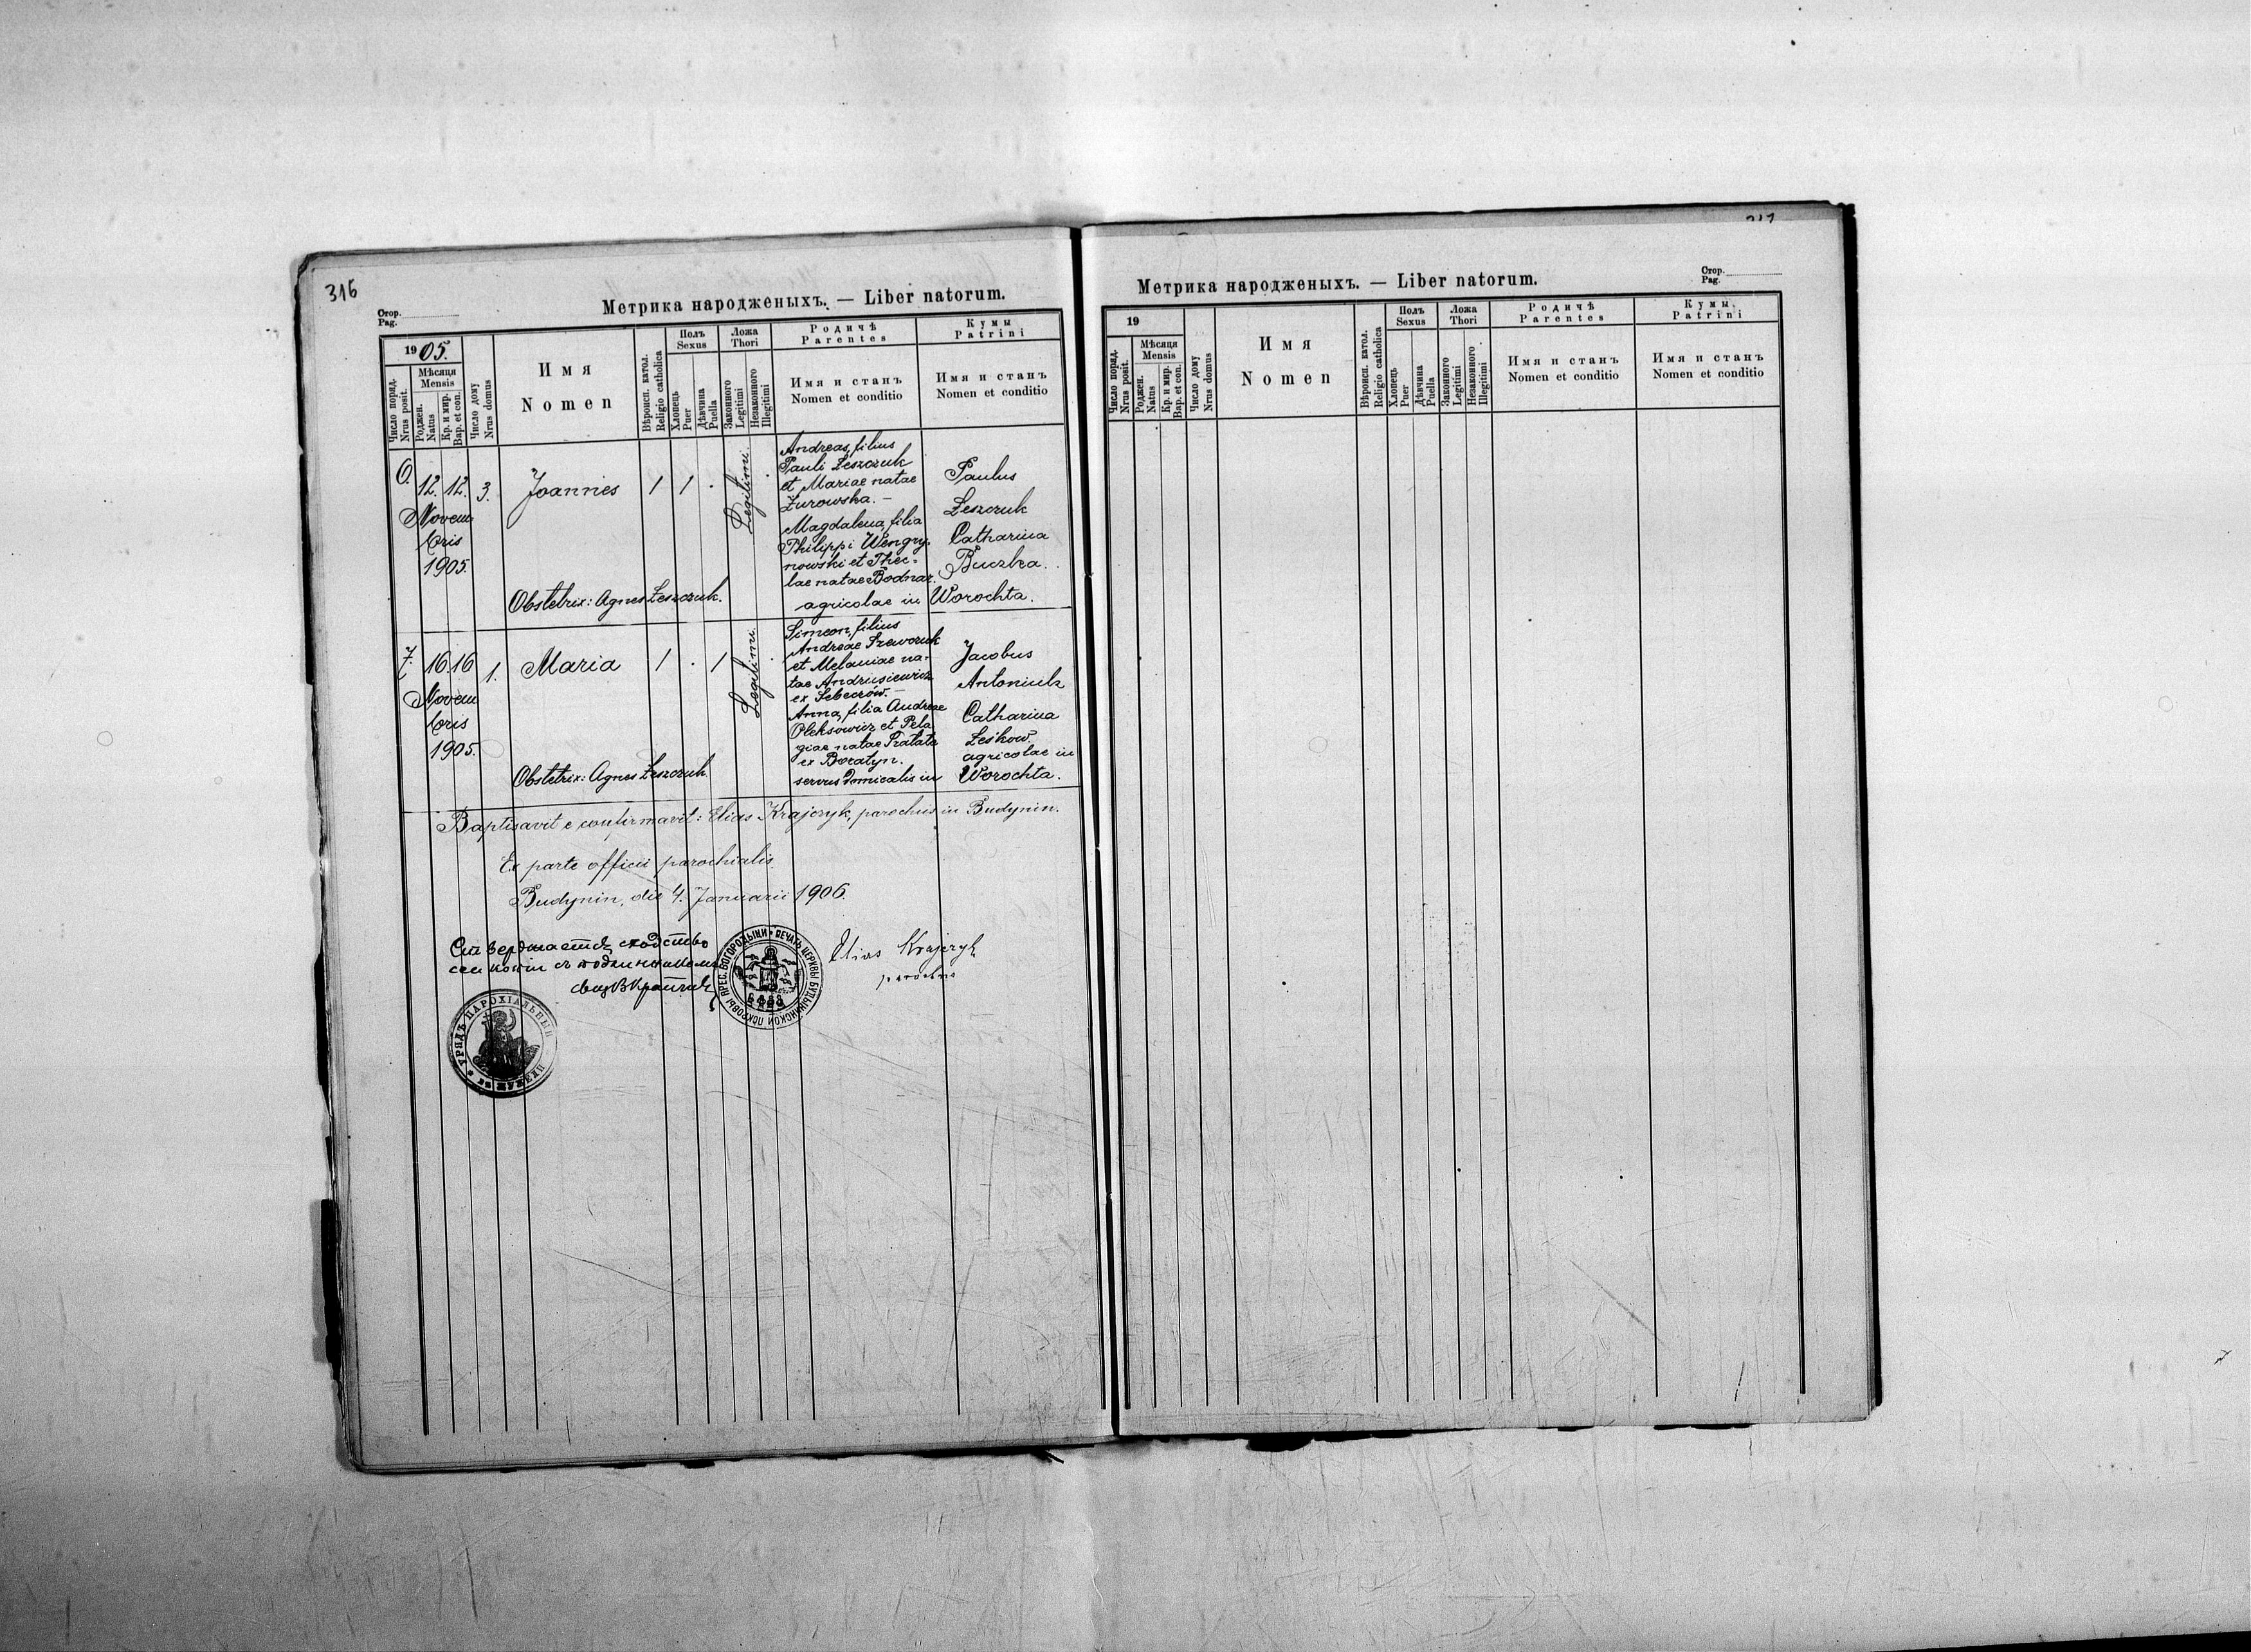 316
Стор.
Pag.
Метрика народженыхъ. — Liber natorum.
1905.
Число поряд.
Nrus posit.
Мѣсяця
Mensis
Роджен.
Natus
Кр. и мир.
Bap. et con.
Число дому
Nrus domus
Имя
Nomen
Вѣроисп. катол.
Religio catholica
Полъ
Sexus
Хлопець
Puer
Дѣвчина
Puella
Ложа
Thori
Законного
Legitimi
Незаконного
Illegitimi
Родичѣ
Parentes
Имя и станъ
Nomen et conditio
Кумы
Patrini
Имя и станъ
Nomen et conditio
6. 12. 12. 3. Joannes 1 1 . Legitimi .
Novem
bris
1905.
Andreas, filius
Pauli Leszczuk
et Mariae natae
Żurowska. —
Magdalena, filia
Philippi Wengry-
nowski et Thec-
lae natae Bodnar.
agricolae in Worochta.
Paulus
Leszczuk
Catharina
Buczka.
Obstetrix: Agnes Leszczuk.
7. 16 16 1. Maria 1 . 1 Legitimi .
Novem
bris
1905.
Simeon, filius
Andreae Szewczuk
et Melaniae na-
tae Andrusiewicz
ex Sebeczów. —
Anna, filia Andreae
Oleksowicz et Pela
giae natae Pratata
ex Boratyn.
servus domicalis in
Jacobus
Antoniuk
Catharina
Leśkow.
agricolae in
Worochta.
Obstetrix: Agnes Leszczuk
Baptisavit e confirmavit: Elias Krajczyk, parochus in Budynin.
Ex parte officii parochialis.
Budynin, die 4. Januarii 1906.
Elias Krajczyk
parochus
Стверджается сходство
сеи копіи съ подлинникомъ
ПЕЧАТЬ ЦЕРКВЫ БУДЫНИНСКОЙ ПОКРОВЫ ПРЕС. БОГОРОДЫЦИ
УРЯДЪ ПАРОХІАЛЬНЫЙ
Стор.
Pag.
Метрика народженыхъ. — Liber natorum.
19
Число поряд.
Nrus posit.
Мѣсяця
Mensis
Роджен.
Natus
Кр. и мир.
Bap. et con.
Число дому
Nrus domus
Имя
Nomen
Вѣроисп. катол.
Religio catholica
Полъ
Sexus
Хлопець
Puer
Дѣвчина
Puella
Ложа
Thori
Законного
Legitimi
Незаконного
Illegitimi
Родичѣ
Parentes
Имя и станъ
Nomen et conditio
Кумы
Patrini
Имя и станъ
Nomen et conditio